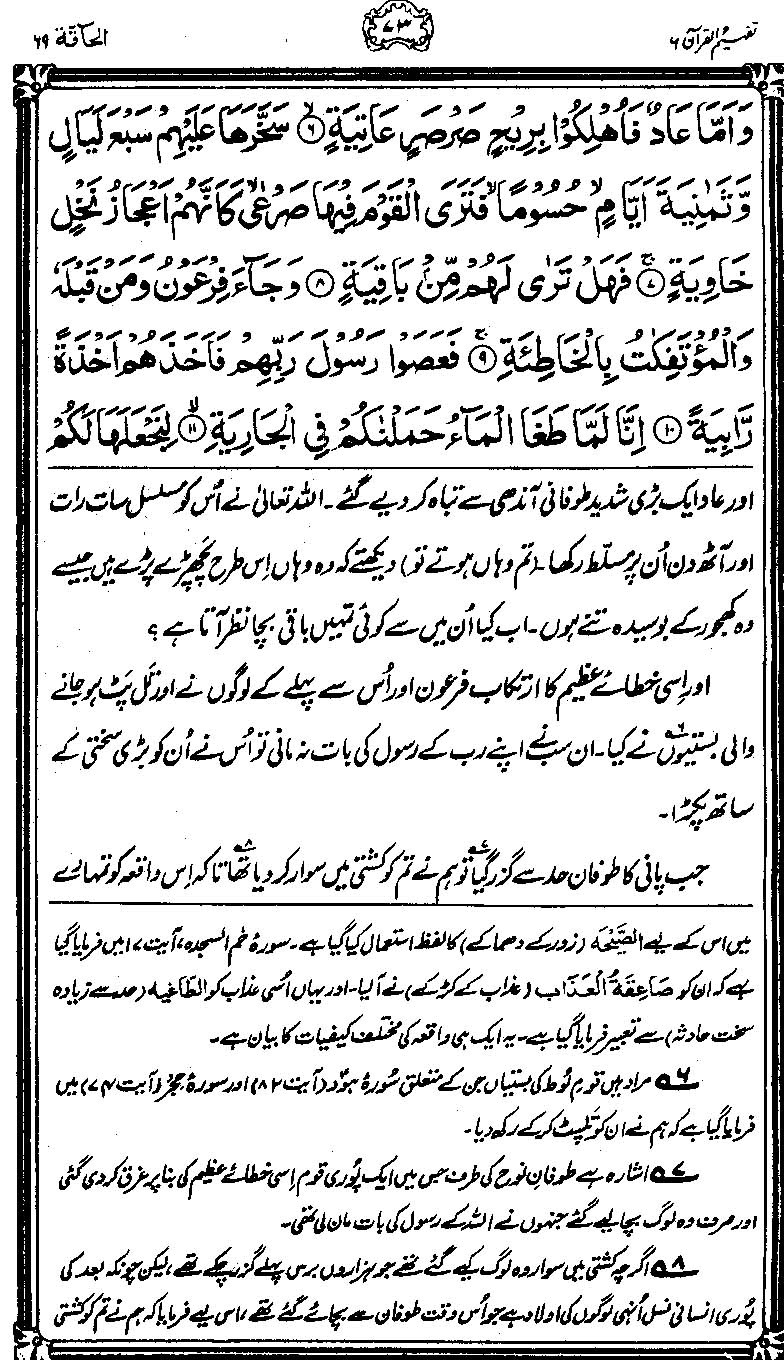 تفہیم القرآن ۶
۷۳
الحآقۃ ۶۹
وَاَمَّا عَادٌ فَاُهْلِكُوْا بِرِيْحٍ صَرْصَرٍ عَاتِيَةٍ ۙ۝۶ سَخَّرَهَا عَلَيْهِمْ سَبْعَ لَيَالٍ
وَّثَمٰنِيَةَ اَيَّامٍ ۙ حُسُوْمًا ۙ فَتَرَى الْقَوْمَ فِيْهَا صَرْعٰى ۙ كَاَنَّهُمْ اَعْجَازُ نَخْلٍ
خَاوِيَةٍ ۚ۝۷ فَهَلْ تَرٰى لَهُمْ مِّنْۢ بَاقِيَةٍ ۝۸ وَجَآءَ فِرْعَوْنُ وَمَنْ قَبْلَهٗ
وَالْمُؤْتَفِكٰتُ بِالْخَاطِئَةِ ۚ۝۹ فَعَصَوْا رَسُوْلَ رَبِّهِمْ فَاَخَذَهُمْ اَخْذَةً
رَّابِيَةً ۝۱۰ اِنَّا لَمَّا طَغَا الْمَآءُ حَمَلْنٰكُمْ فِى الْجَارِيَةِ ۙ۝۱۱ لِنَجْعَلَهَا لَكُمْ
اور عاد ایک بڑی شدید طوفانی آندھی سے تباہ کر دیے گئے۔ اللہ تعالیٰ نے اُس کو مسلسل سات رات
اور آٹھ دن اُن پر مسلط رکھا۔ (تم وہاں ہوتے تو) دیکھتے کہ وہ وہاں اِس طرح پچھڑے پڑے ہیں جیسے
وہ کھجور کے بوسیدہ تنے ہوں۔ اب کیا اُن میں سے کوئی تمہیں باقی بچا نظر آتا ہے؟
اور اِسی خطائے عظیم کا ارتکاب فرعون اور اُس سے پہلے کے لوگوں نے اور تل پٹ ہو جانے
والی بستیوں۶ نے کیا۔ ان سب نے اپنے رب کے رسول کی بات نہ مانی تو اُس نے اُن کو بڑی سختی کے
ساتھ پکڑا۔
جب پانی کا طوفان حد سے گزر گیا۷ تو ہم نے تم کو کشتی میں سوار کر دیا تھا۸ تاکہ اِس واقعہ کو تمہارے
میں اس کے لیے الصَّیْحَہ (زور کے دھماکے) کا لفظ استعمال کیا گیا ہے۔ سورۂ حٰم السجدہ، آیت ۱۷ میں فرمایا گیا
ہے کہ ان کو صَاعِقَةُ الْعَذَاب (عذاب کے کڑکے) نے آ لیا۔ اور یہاں اُسی عذاب کو الطّاغیہ (حد سے زیادہ
سخت حادثہ) سے تعبیر فرمایا گیا ہے۔ یہ ایک ہی واقعہ کی مختلف کیفیات کا بیان ہے۔
۶؎ مراد ہیں قومِ لُوط کی بستیاں جن کے متعلق سُورۂ ہُود (آیت ۸۲) اور سورۂ حِجر (آیت ۷۴) میں
فرمایا گیا ہے کہ ہم نے ان کو تَلپٹ کر کے رکھ دیا۔
۷؎ اشارہ ہے طوفانِ نوح کی طرف جس میں ایک پُوری قوم اِسی خطائے عظیم کی بنا پر غرق کر دی گئی
اور صرف وہ لوگ بچا لیے گئے جنہوں نے اللہ کے رسول کی بات مان لی تھی۔
۸؎ اگرچہ کشتی میں سوار وہ لوگ کیے گئے تھے جو ہزاروں برس پہلے گزر چکے تھے، لیکن چونکہ بعد کی
پُوری انسانی نسل اُنہی لوگوں کی اولاد ہے جو اُس وقت طوفان سے بچائے گئے تھے، اس لیے فرمایا کہ ہم نے تم کو کشتی